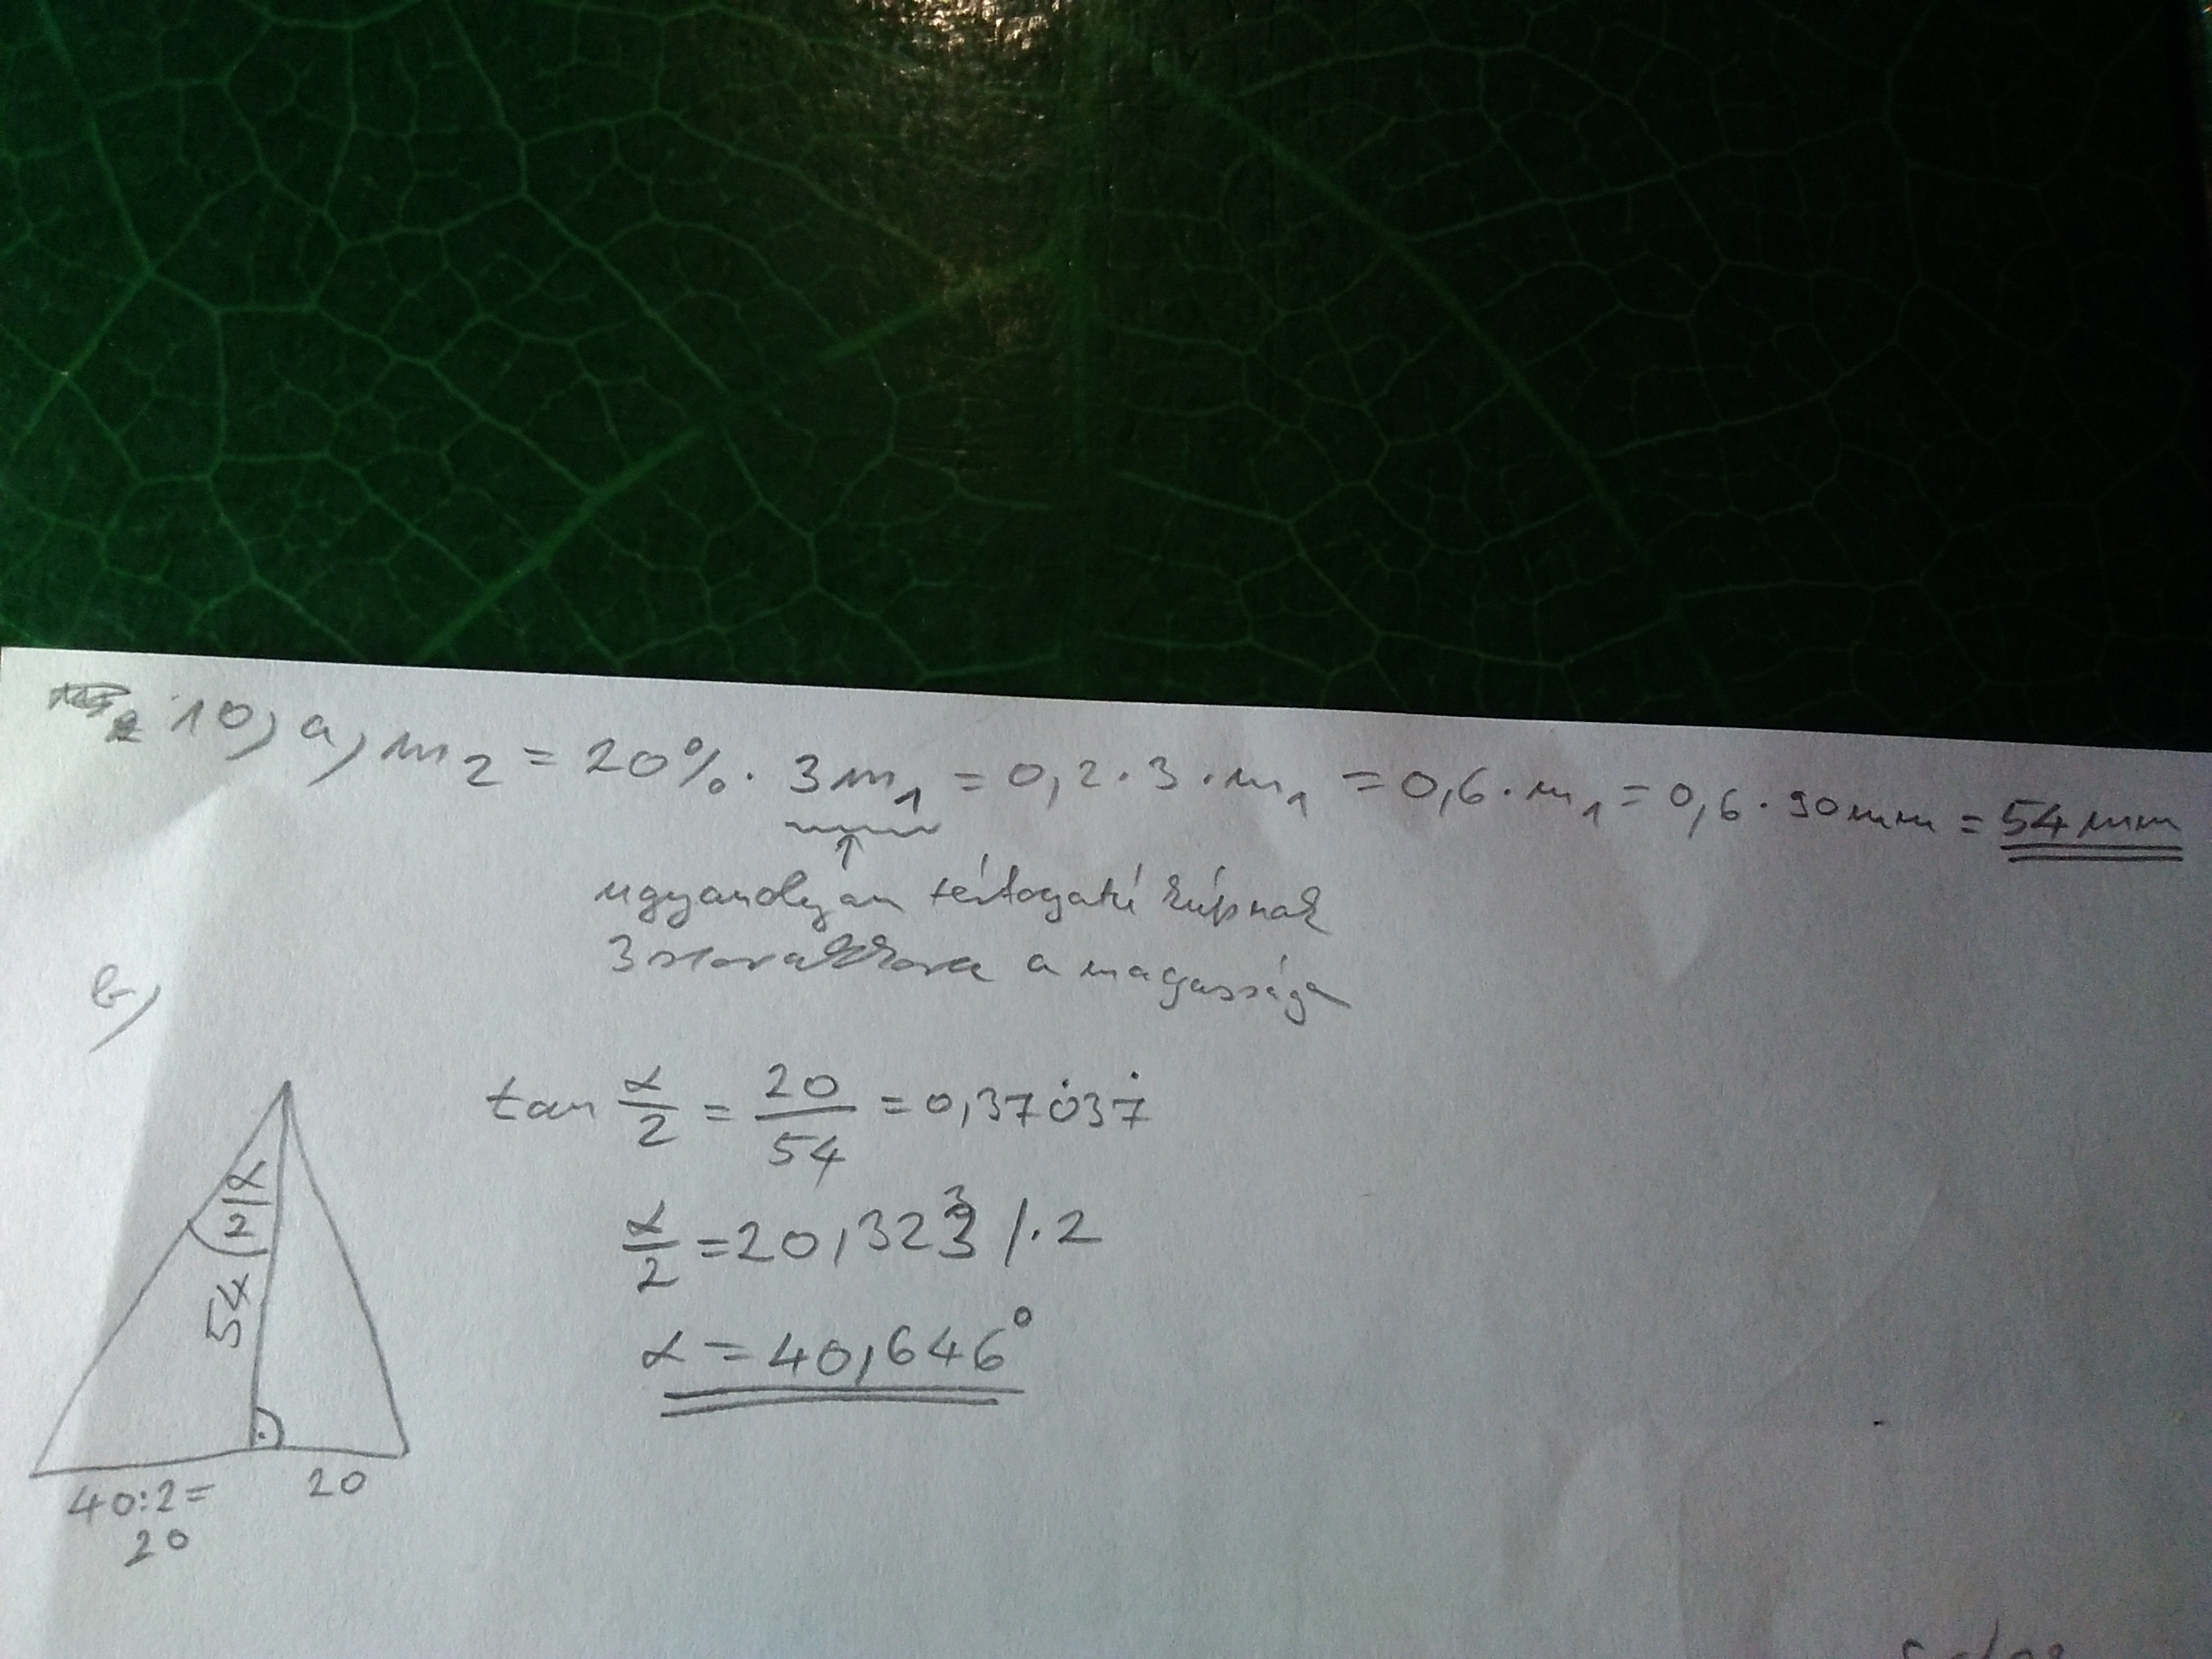 10, a, m₂ = 20% · 3m₁ = 0,2 · 3 · m₁ = 0,6 · m₁ = 0,6 · 90mm = 54 mm
↑
ugyanolyan térfogatú kúpnak
3szorakkora a magassága
b,
tan α/2 = 20/54 = 0,370̇37̇
α/2 = 20,323 /·2
α = 40,646°
α/2
54
40:2=
20
20